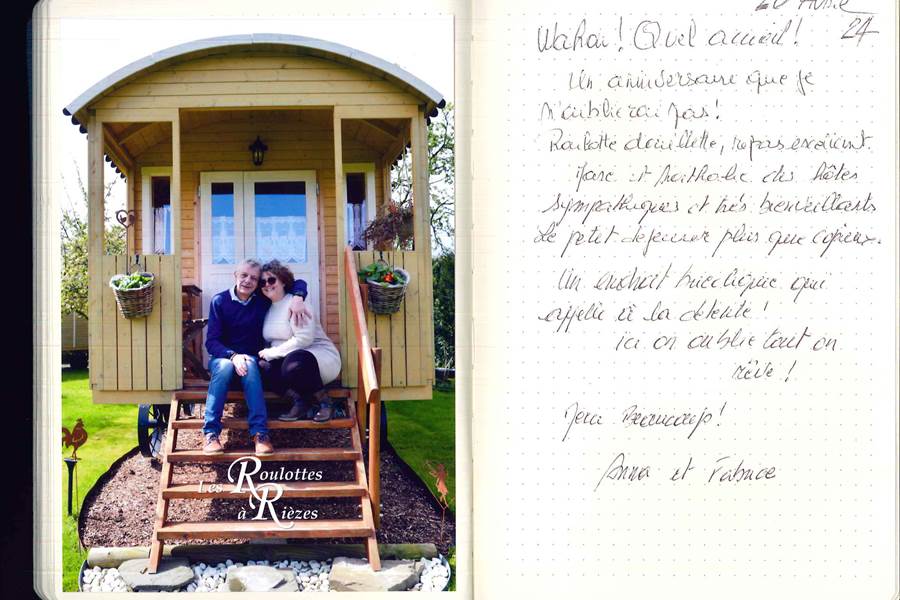 Les Roulottes
à Rièzes
24
Wahou! Quel accueil!
Un anniversaire que je
n'oublierai pas!
Roulotte douillette, repas excellent.
Marc et Nathalie des hôtes
sympathiques et très bienveillants
Le petit dejeuner plus que copieux.
Un endroit bucolique qui
appelle à la détente!
ici on oublie tout on
rêve!
Beaucoup!
Anna et Fabrice